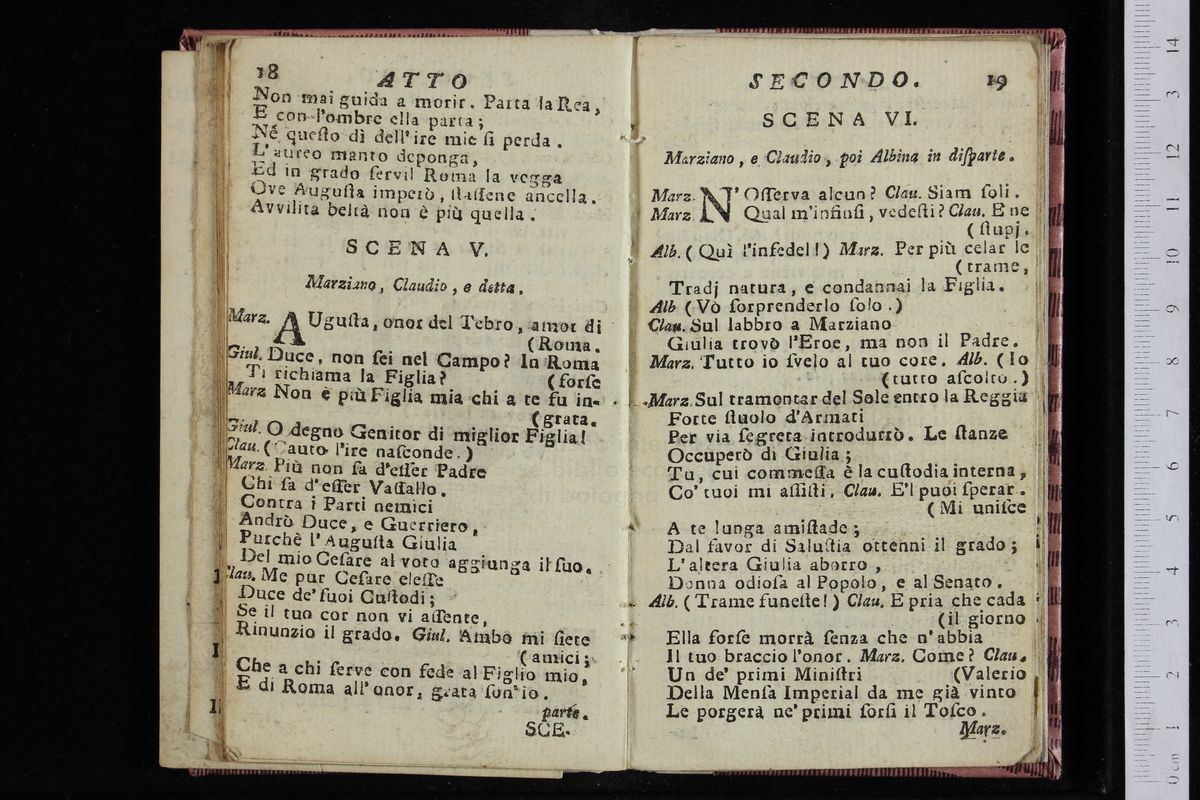 18 ATTO
Non mai guida a morir. Parta la Rea,
E con l'ombre ella parta;
Né queſto dì dell'ire mie ſi perda.
L'aureo manto deponga,
Ed in grado ſervil Roma la vegga
Ove Auguſta imperò, ſtaſſene ancella.
Avvilita beltà non è più quella.
SCENA V.
Marziano, Claudio, e detta.
Marz. AUguſta, onor del Tebro, amor di
(Roma.
Giul. Duce, non ſei nel Campo? In Roma
Ti richiama la Figlia? (forſe
Marz Non è più Figlia mia chi a te fu in-
(grata.
Giul. O degno Genitor di miglior Figlia!
Clau. (Cauto l'ire naſconde.)
Marz. Più non ſa d'eſſer Padre
Chi ſa d'eſſer Vaſſallo.
Contra i Parti nemici
Andrò Duce, e Guerriero,
Purchè l'Auguſta Giulia
Del mio Ceſare al voto aggiunga il ſuo.
Clau. Me pur Ceſare eleſſe
Duce de' ſuoi Cuſtodi;
Se il tuo cor non vi aſſente,
Rinunzio il grado. Giul. Ambo mi ſiete
(amici;
Che a chi ſerve con fede al Figlio mio,
E di Roma all'onor, grata ſon'io.
parte.
SCE-
SECONDO. 19
SCENA VI.
Marziano, e Claudio, poi Albina in diſparte.
Marz. N'Oſſerva alcun? Clau. Siam ſoli.
Marz Qual m'infinſi, vedeſti? Clau. E ne
(ſtupj.
Alb. (Quì l'infedel!) Marz. Per più celar le
(trame,
Tradj natura, e condannai la Figlia.
Alb (Vò ſorprenderlo ſolo.)
Clau. Sul labbro a Marziano
Giulia trovò l'Eroe, ma non il Padre.
Marz. Tutto io ſvelo al tuo core. Alb. (Io
(tutto aſcolto.)
Marz. Sul tramontar del Sole entro la Reggia
Forte ſtuolo d'Armati
Per via ſegreta introdurrò. Le ſtanze
Occuperò di Giulia;
Tu, cui commeſſa è la cuſtodia interna,
Co' tuoi mi aſſiſti. Clau. E'l puoi ſperar.
(Mi uniſce
A te lunga amiſtade;
Dal favor di Saluſtia ottenni il grado;
L'altera Giulia aborro,
Donna odioſa al Popolo, e al Senato.
Alb. (Trame funeſte!) Clau. E pria che cada
(il giorno
Ella forſe morrà ſenza che n'abbia
Il tuo braccio l'onor. Marz. Come? Clau.
Un de' primi Miniſtri (Valerio
Della Menſa Imperial da me già vinto
Le porgerà ne' primi ſorſi il Toſco.
Marz.